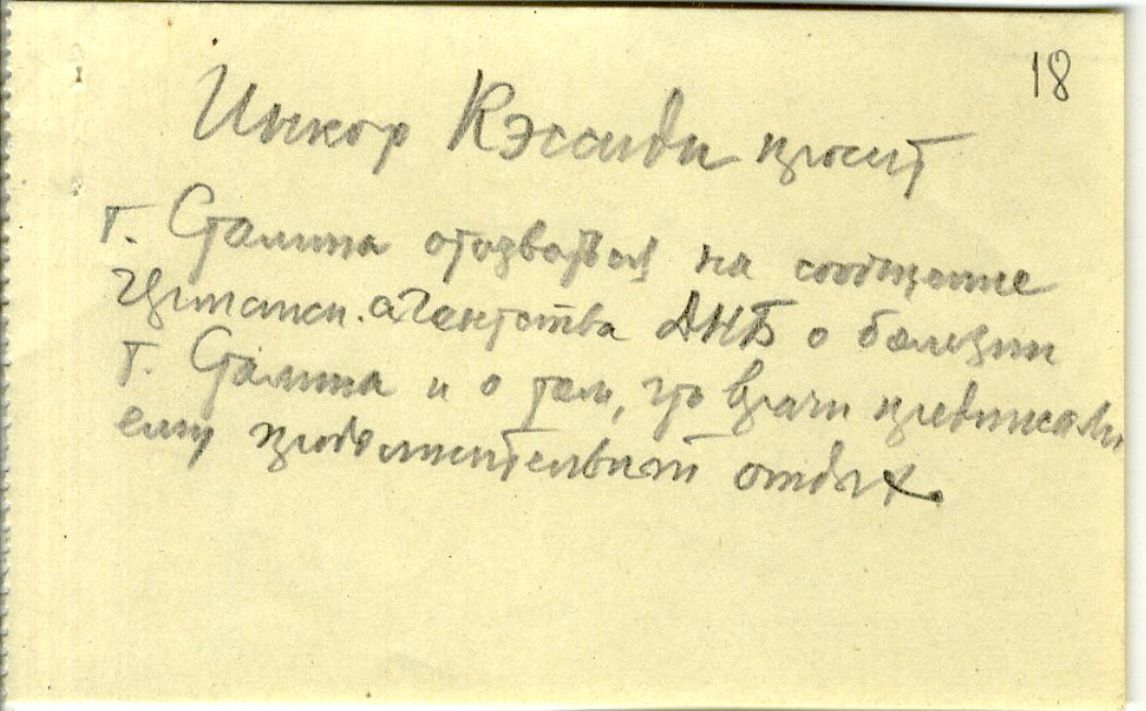 18
Инкор Кэссиди просит
т. Сталина отозваться на сообщение
германск. агентства ДНБ о болезни
т. Сталина и о том, что врачи предписали
ему продолжительный отдых.